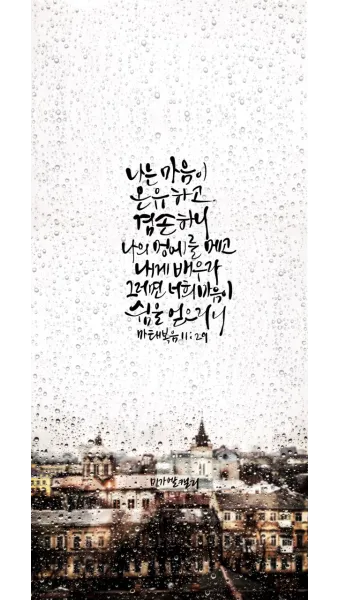 나는 마음이
온유하고
겸손하니
나의 멍에를 메고
내게 배우라
그러면 너희 마음이
쉼을 얻으리니
마태복음 11:29